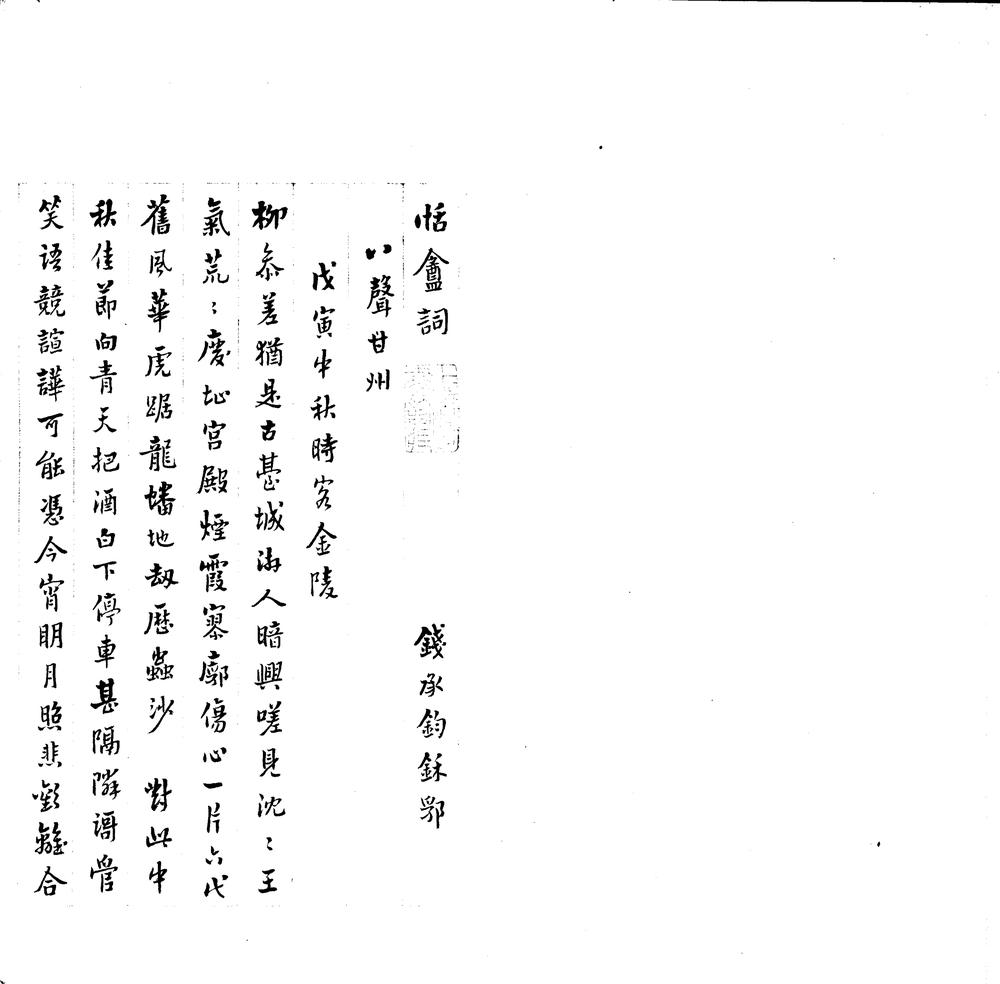 恬盦詞 錢承鈞鉌郢
八聲甘州
戊寅中秋時客金陵
柳叅差猶是古臺城游人暗興嗟見沈〻王
氣荒〻廢址宮殿煙霞寥廓傷心一片六代
舊風華虎踞龍蟠地劫歷蟲沙 對此中
秋佳節向青天把酒白下停車甚隔隣謌管
笑語競諠譁可能憑今宵明月照悲歡離合